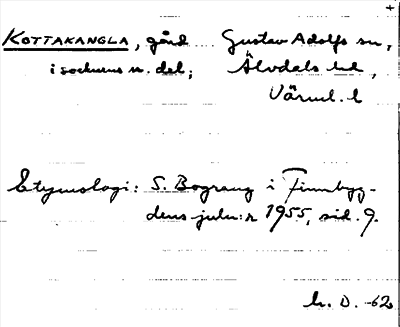 KOTTAKANGLA, gård Gustav Adolfs sn,
i socknens n. del; Älvdals hd,
Värml. l
Etymologi: S. Bograng i Finnbyg-
dens julnr 1955, sid. 9.
h. D. -62